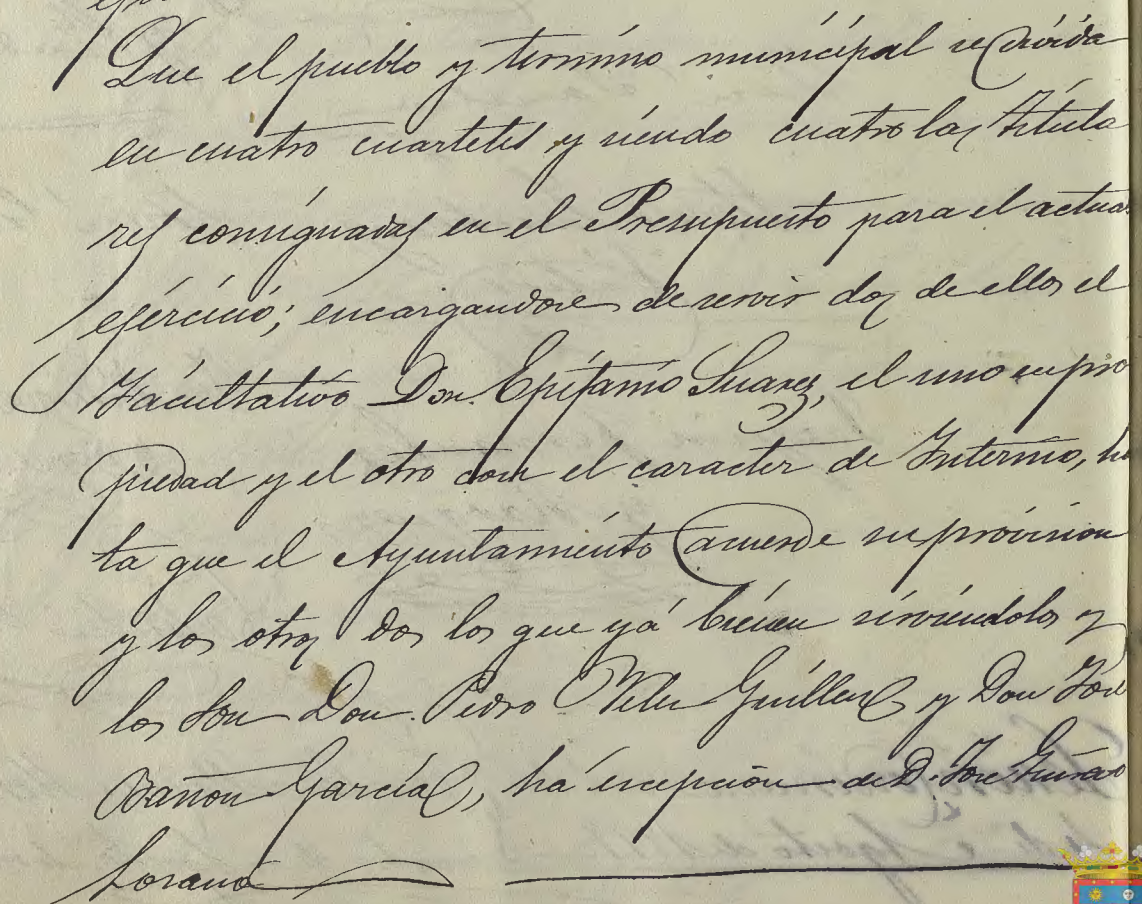 Que el pueblo y termino municipal se divida
en cuatro cuarteles y siendo cuatro las titula
res consignadas en el Presupuesto para el actual
ejercicio; encargandose de servir dos de ellos el
Facultativo Don Epifanio Suarez, el uno en pro
piedad y el otro con el caracter de Interino, has
ta que el Ayuntamiento acuerde su provision
y los otros dos los que ya bienen sirviendolos y
los son Don Pedro Velez Guillen y Don José
Bañon García, ha escepcion de D. José
Lorano